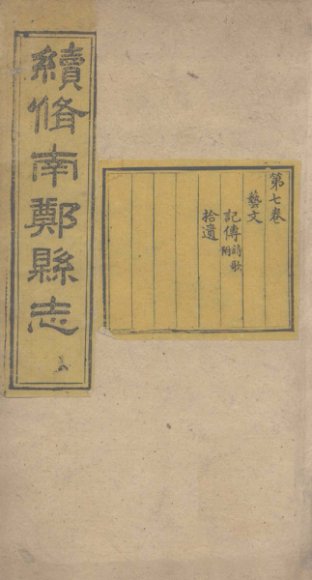 續修南鄭縣志
第七卷
藝文
記傳詩歌附
拾遺